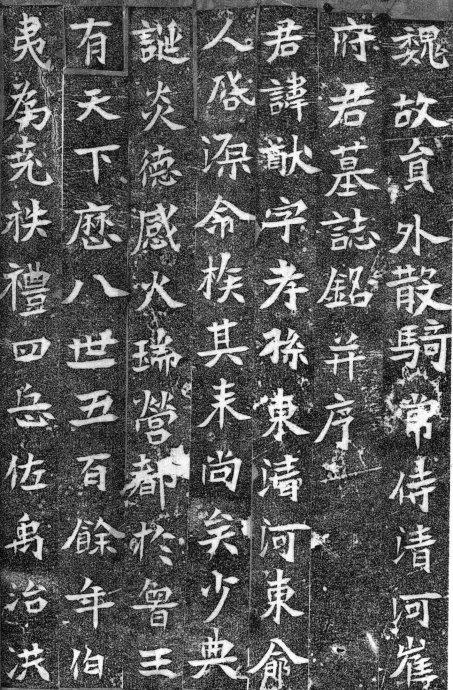 魏故員外散騎常侍清河崔
府君墓誌銘并序
君諱猷字孝孫東清河東鄃
人啓源命族其来尚矣少典
誕炎德感火瑞營都於魯王
有天下歷八世五百餘年伯
夷為堯秩禮四岳佐禹治洪